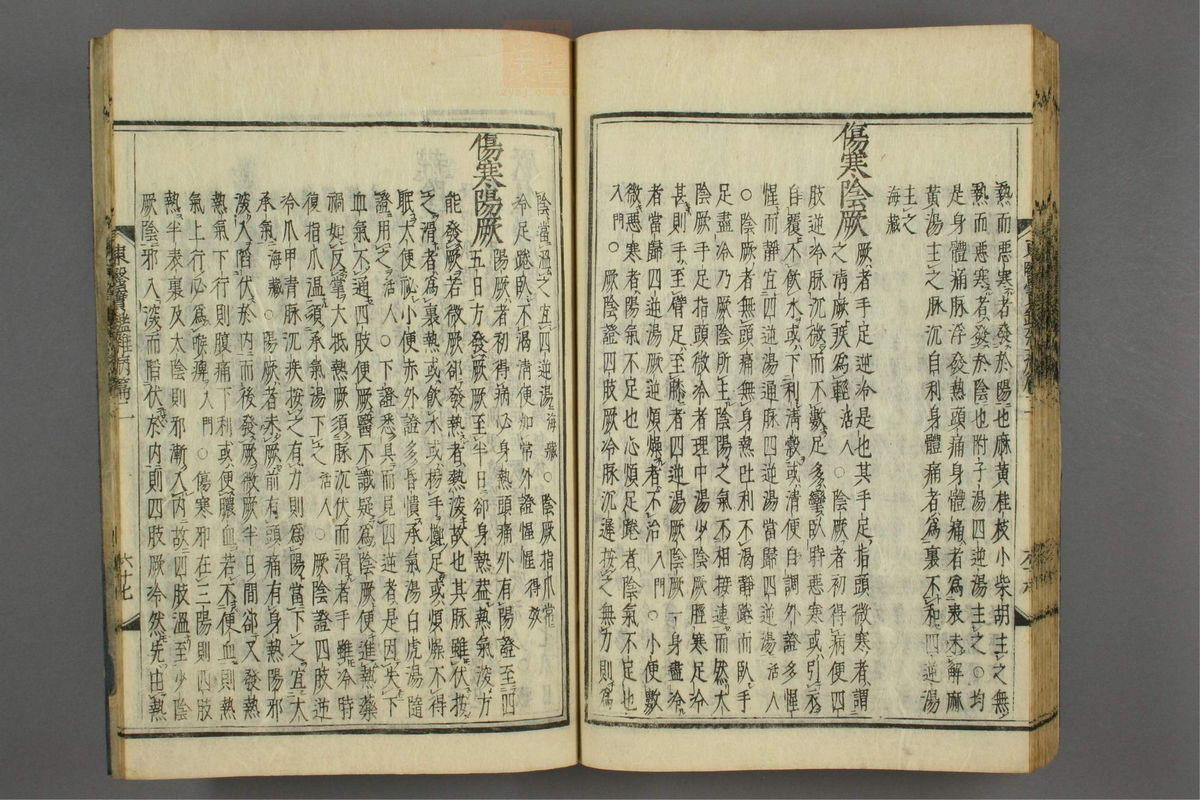 熱而惡寒者發於陽也麻黃桂枝小柴胡主之無
熱而惡寒者發於陰也附子湯四逆湯主之○均
是身體痛脉浮發熱頭痛身體痛者爲表未解麻
黃湯主之脉沉自利身體痛者爲裏不和四逆湯
主之
海藏
傷寒陰厥
厥者手足逆冷是也其手足指頭微寒者謂
之淸厥疾爲輕活人○陰厥者初得病便四
肢逆冷脉沉微而不數足多攣臥時惡寒或引衣
自覆不飮水或下利淸穀或淸便自調外證多惺
惺而靜宜四逆湯通脉四逆湯當歸四逆湯活人
○陰厥者無頭痛無身熱吐利不渴靜踡而臥手
足盡冷乃厥陰所主陰陽之氣不相接連而然太
陰厥手足指頭微冷者理中湯少陰厥脛寒足冷
甚則手至臂足至膝者四逆湯厥陰厥一身盡冷
者當歸四逆湯厥逆煩燥者不治入門○小便數
微惡寒者陽氣不足也心煩足踡者陰氣不足也
入門○厥陰證四肢厥冷脉沉遲按之無力則爲
陰當溫之宜四逆湯海藏○陰厥指爪常
冷足踡臥不渴淸便如常外證惺惺得效
傷寒陽厥
陽厥者初得病必身熱頭痛外有陽證至四
五日方發厥厥至半日却身熱盖熱氣深方
能發厥若微厥却發熱者熱深故也其脉雖伏按
之滑者爲裏熱或飮水或楊手擲足或煩燥不得
眠大便秘小便赤外證多昏憒承氣湯白虎湯隨
證用之活人○下證悉具而見四逆者是因失下
血氣不通四肢便厥醫不識疑爲陰厥便進熱藥
禍如反掌大抵熱厥須脉沉伏而滑者手雖冷時
復指爪溫須承氣湯下之活人○厥陰證四肢逆
冷爪甲靑脉沉疾按之有力則爲陽當下之宜大
承氣海藏○陽厥者未厥前有頭痛有身熱陽邪
深入陷伏於內而後發厥微厥半日間却又發熱
熱氣下行則腹痛下利或便膿血若不便血則熱
氣上行必爲喉痺入門○傷寒邪在三陽則四肢
熱半表裏及太陰則邪漸入內故四肢溫至少陰
厥陰邪入深而陷伏於內則四肢厥冷然先由熱
東醫寶鑑雜病篇二